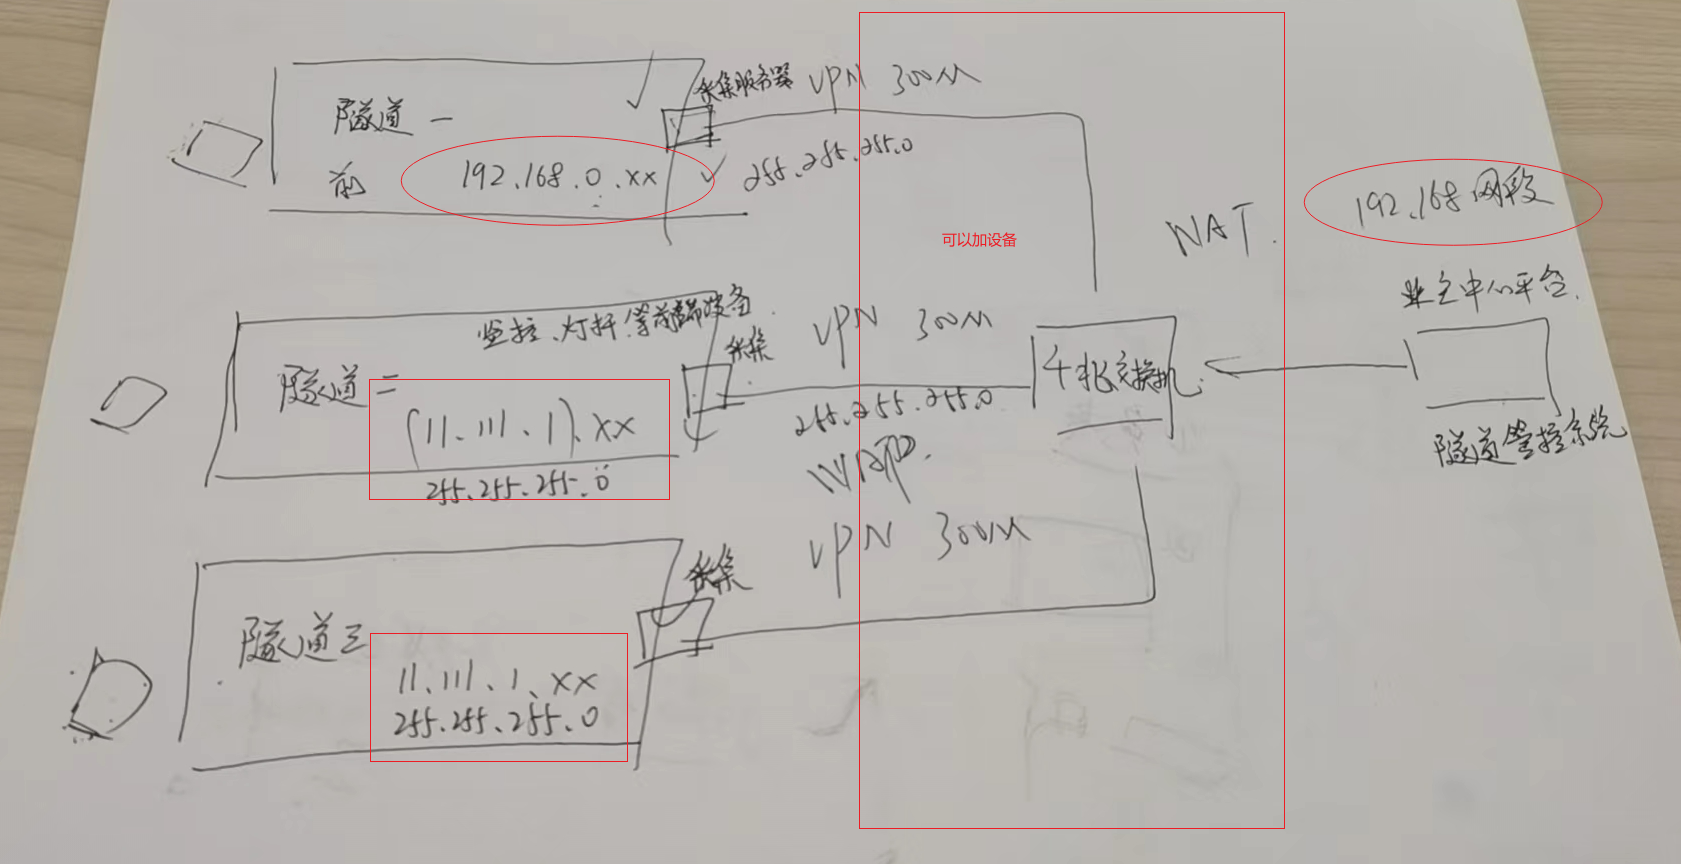 采集服务器 VPN 300M
隧道一
前 192.168.0.xx
255.255.255.0
192.168网段
可以加设备
NAT.
业主中心平台.
监控、灯杆等前端设备.
采集
VPN 300M
隧道二
(11.111.1).xx
255.255.255.0
255.255.255.0
千兆交换机
隧道管控系统
VPN 300M
采集
隧道三
11.111.1.xx
255.255.255.0